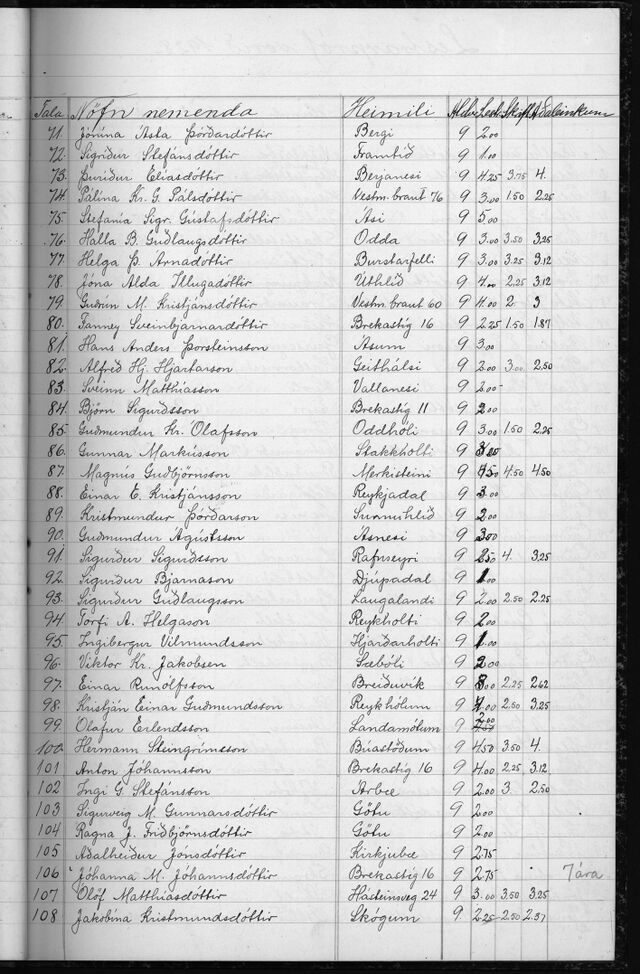 Tala Nöfn nemenda Heimili Aldur Lestr. Skrift Aðaleinkunn
71. Jónína Ásta Þórðardóttir Bergi 9 2.00
72. Sigríður Stefánsdóttir Framtíð 9 1.00
73. Þuríður Elíasdóttir Berjanesi 9 4.25 3.75 4.
74. Pálína Kr. G. Pálsdóttir Vestm.braut 76 9 3.00 1.50 2.25
75. Stefanía Sigr. Gústafsdóttir Ási 9 5.00
76. Halla B. Guðlaugsdóttir Odda 9 3.00 3.50 3.25
77. Helga Þ. Árnadóttir Burstarfelli 9 3.00 3.25 3.12
78. Jóna Alda Illugadóttir Úthlíð 9 4.00 2.25 3.12
79. Guðrún M. Kristjánsdóttir Vestm.braut 60 9 4.00 2. 3
80. Fanney Sveinbjarnardóttir Brekastíg 16 9 2.25 1.50 1.87
81. Hans Anders Þorsteinsson Ásum 9 3.00
82. Alfreð Hj. Hjartarson Geithálsi 9 2.00 3.00 2.50
83. Sveinn Matthíasson Vallanesi 9 2.00
84. Björn Sigurðsson Brekastíg 11 9 2.00
85. Guðmundur Kr. Ólafsson Oddhóli 9 3.00 1.50 2.25
86. Gunnar Markússon Stakkholti 9
87. Magnús Guðbjörnsson Merkisteini 9 4.50 4.50
88. Einar E. Kristjánsson Reykjadal 9 3.00
89. Kristmundur Þórðarson Sunnuhlíð 9 2.00
90. Guðmundur Ágústsson Ásnesi 9 3.00
91. Sigurður Sigurðsson Rafnseyri 9 2.50 4. 3.25
92. Sigurður Bjarnason Djúpadal 9 1.00
93. Sigurður Guðlaugsson Laugalandi 9 2.00 2.50 2.25
94 Torfi A. Helgason Reykholti 9 2.00
95. Ingibergur Vilmundsson Hjarðarholti 9 1.00
96. Viktor Kr. Jakobsen Sæbóli 9 2.00
97. Einar Runólfsson Breiðuvík 9 3.00 2.25 2.62
98. Kristján Einar Guðmundsson Reykhólum 9 4.00 2.50 3.25
99. Ólafur Erlendsson Landamótum 9 2.00
100 Hermann Steingrímsson Búastöðum 9 4.50 3.50 4.
101 Anton Jóhannsson Brekastíg 16 9 4.00 2.25 3.12
102 Ingi G. Stefánsson Árbæ 9 2.00 3 2.50
103 Sigurveig M. Gunnarsdóttir Götu 9 2.00
104 Ragna J. Friðbjörnsdóttir Götu 9 2.00
105 Aðalheiður Jónsdóttir Kirkjubæ 9 2.75
106 Jóhanna M. Jóhannsdóttir Brekastíg 16 9 2.75 7 ára
107 Ólöf Matthíasdóttir Hásteinsveg 24 9 3.00 3.50 3.25
108 Jakobína Kristmundsdóttir Skógum 9. 2.25 2.50 2.37